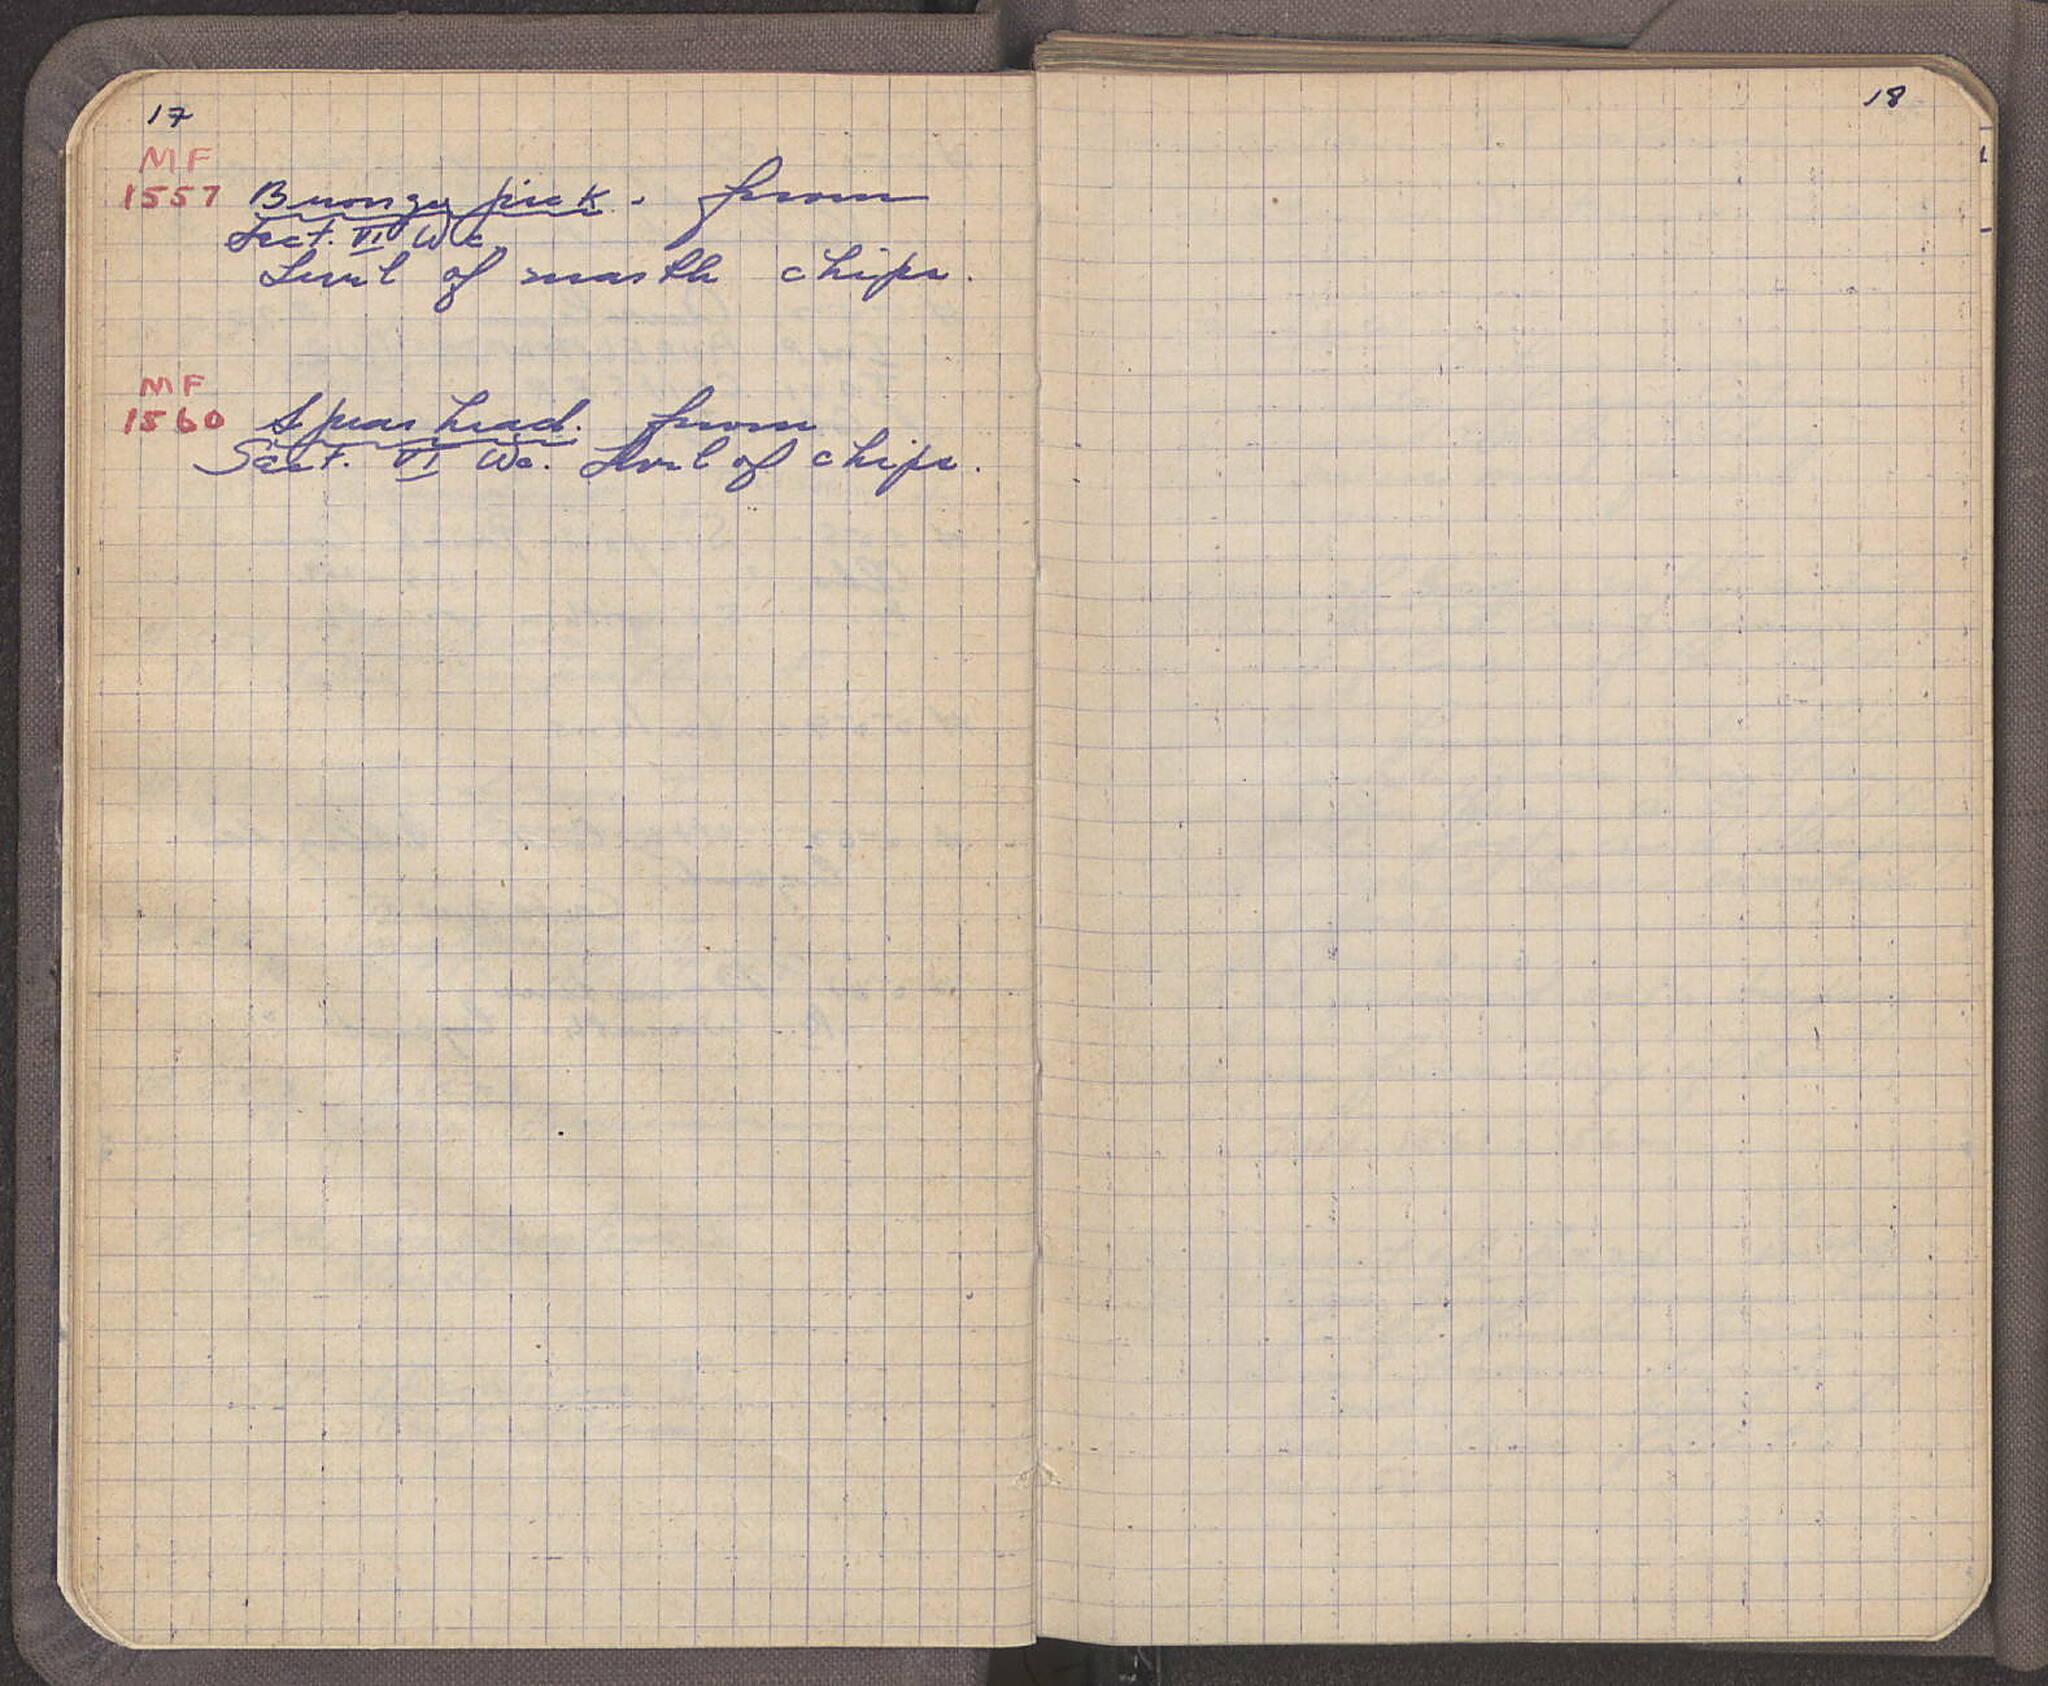 17
MF
1557 Bronze pick. from
Sect. VI Wc.
Level of marble chips.
MF
1560 Spear head. from
Sect. VI Wc. Level of chips.
18